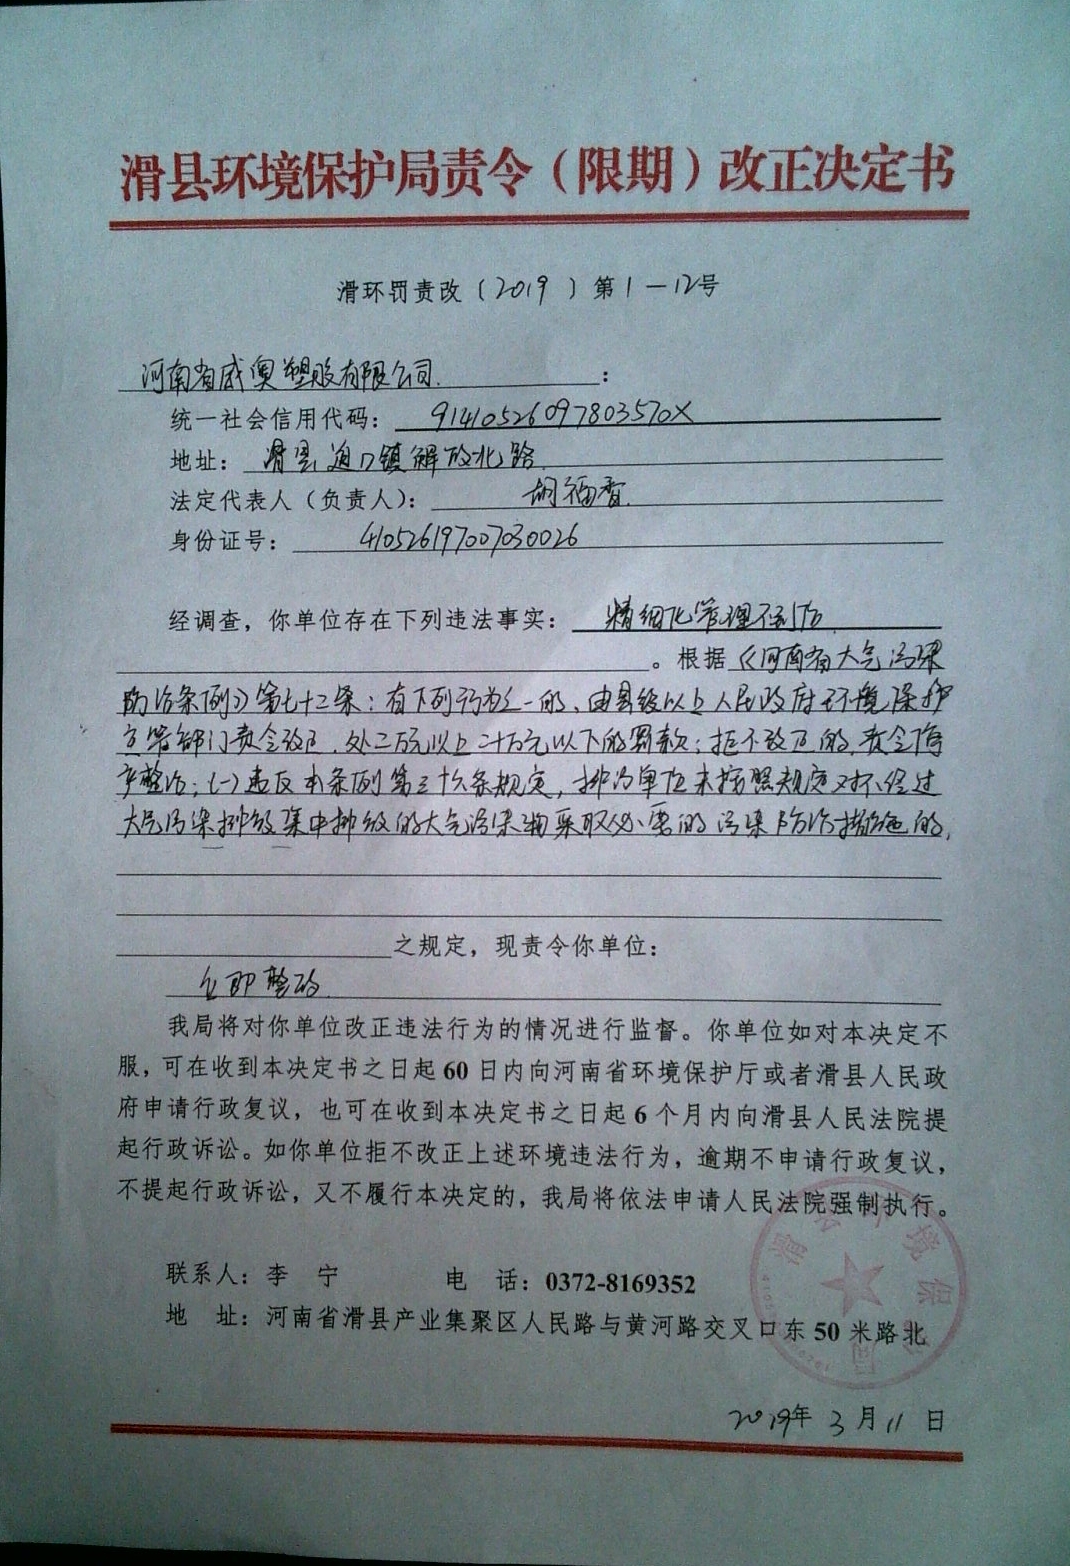 滑县环境保护局责令（限期）改正决定书
滑环罚责改（2019）第1-12号
河南省威奥塑胶有限公司：
统一社会信用代码：91410526097803570X
地址：滑县道口镇解放北路
法定代表人（负责人）：胡福香
身份证号：410526197007030026
经调查，你单位存在下列违法事实：精细化管理不到位
。根据《河南省大气污染
防治条例》第七十二条：有下列行为之一的，由县级以上人民政府环境保护
主管部门责令改正，处二万元以上二十万元以下的罚款；拒不改正的，责令停
产整治：（一）违反本条例第三十六条规定，排污单位未按照规定对不经过
大气污染排放集中排放的大气污染物采取必要的污染防治措施的，
之规定，现责令你单位：
立即整改
我局将对你单位改正违法行为的情况进行监督。你单位如对本决定不
服，可在收到本决定书之日起60日内向河南省环境保护厅或者滑县人民政
府申请行政复议，也可在收到本决定书之日起6个月内向滑县人民法院提
起行政诉讼。如你单位拒不改正上述环境违法行为，逾期不申请行政复议，
不提起行政诉讼，又不履行本决定的，我局将依法申请人民法院强制执行。
联系人：李 宁 电 话：0372-8169352
地 址：河南省滑县产业集聚区人民路与黄河路交叉口东50米路北
2019年3月11日